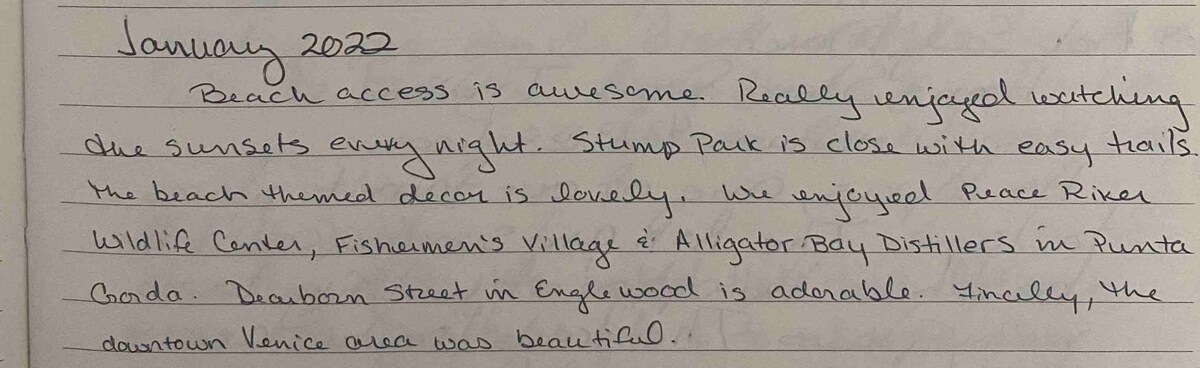 January 2022
Beach access is awesome. Really enjoyed watching
the sunsets every night. Stump Park is close with easy trails.
The beach themed decor is lovely. We enjoyed Peace River
Wildlife Center, Fishermen's Village & Alligator Bay Distillers in Punta
Gorda. Dearborn Street in Englewood is adorable. Finally, the
downtown Venice area was beautiful.